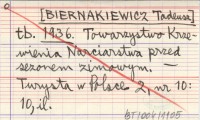 [BIERNAKIEWICZ Tadeusz]
tb. 1936. Towarzystwo Krze-
wienia Narciarstwa przed
sezonem zimowym. —
Turysta w Polsce 2, nr 10:
10, il.